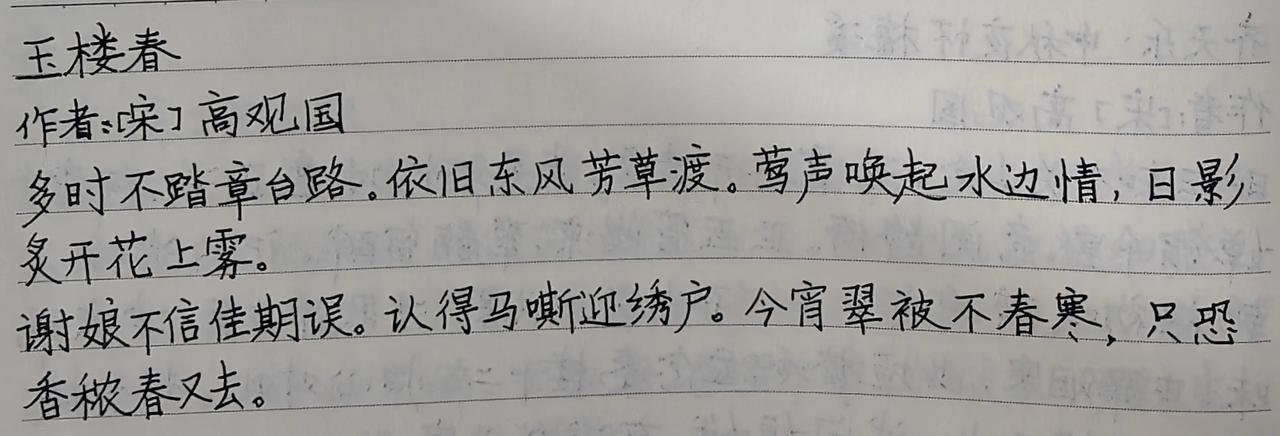 玉楼春
作者:[宋]高观国
多时不踏章台路。依旧东风芳草渡。莺声唤起水边情,日影
炙开花上雾。
谢娘不信佳期误。认得马嘶迎绣户。今宵翠被不春寒,只恐
香秾春又去。